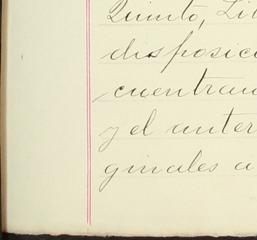 Quinto, Li
disposic
cuentran
y el anter
ginales a